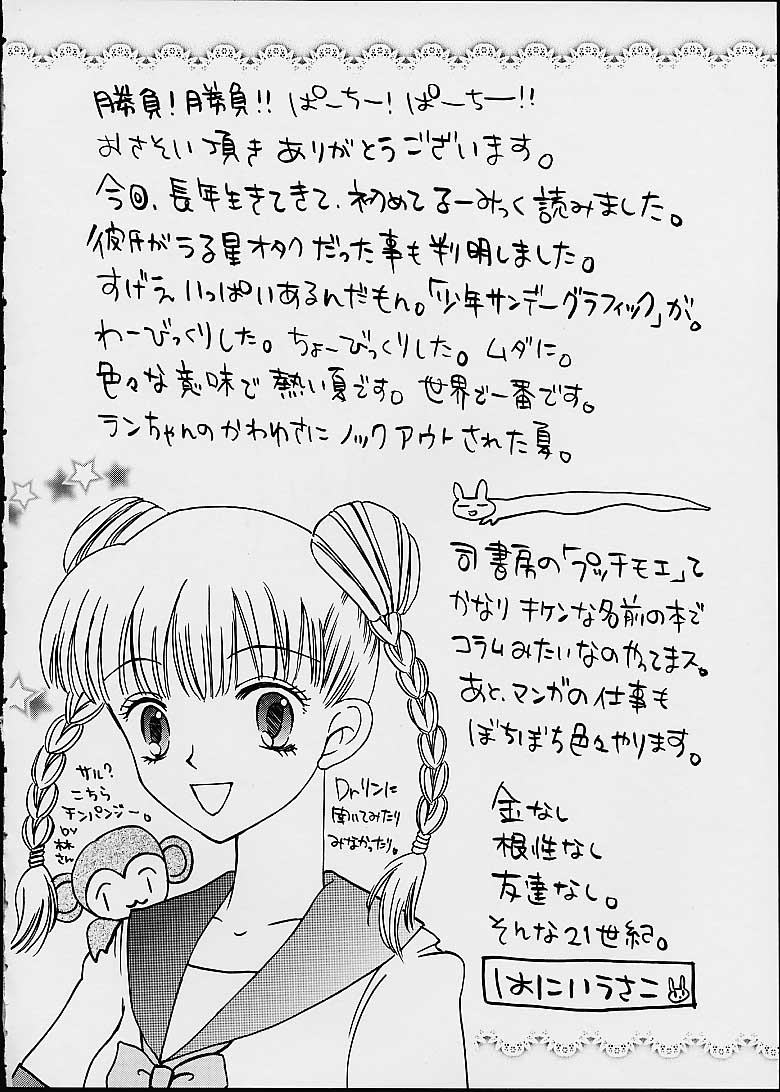 勝負！勝負！！ ぱーちー！ぱーちー！！
おさそい頂きありがとうございます。
今回、長年生きてきて、初めてるーみっく読みました。
彼氏がうる星オタクだった事も判明しました。
すげえいっぱいあるんだもん。「少年サンデーグラフィック」が。
わーびっくりした。ちょーびっくりした。ムダに。
色々な意味で熱い夏です。世界で一番です。
ランちゃんのかわゆさにノックアウトされた夏。
司書房の「プッチモエ」て
かなりキケンな名前の本で
コラムみたいなのやってまス。
あと、マンガの仕事も
ぼちぼち色々やります。
金なし
根性なし
友達なし。
そんな21世紀。
はにいうさこ
サル？
こちら
チンパンジー。
by
林さん
Dr.リンに
聞いてみたり
みなかったり。